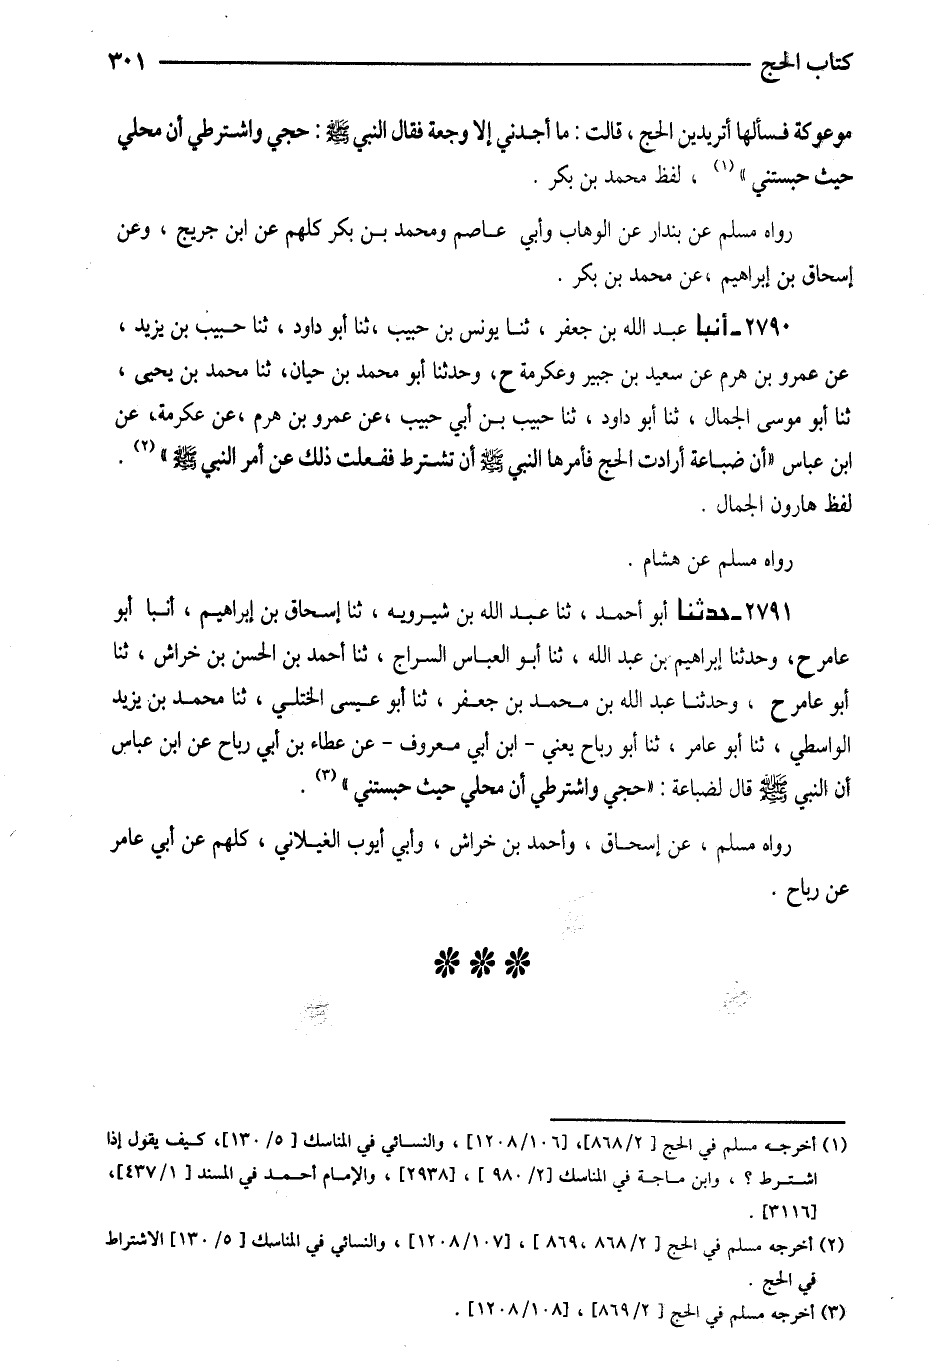 كتاب الحج ٣٠١
موعوكة فسألها أتريدين الحج ، قالت : ما أجدني إلا وجعة فقال النبي ﷺ : حجي واشترطي أن محلي
حيث حبستني » (١) ، لفظ محمد بن بكر .
رواه مسلم عن بندار عن الوهاب وأبي عاصم ومحمد بن بكر كلهم عن ابن جريج ، وعن
إسحاق بن إبراهيم ،عن محمد بن بكر .
٢٧٩٠ـ أنبا عبد الله بن جعفر ، ثنا يونس بن حبيب ،ثنا أبو داود ، ثنا حبيب بن يزيد ،
عن عمرو بن هرم عن سعيد بن جبير وعكرمة ح، وحدثنا أبو محمد بن حيان، ثنا محمد بن يحيى ،
ثنا أبو موسى الجمال ، ثنا أبو داود ، ثنا حبيب بن أبي حبيب ،عن عمرو بن هرم ،عن عكرمة، عن
ابن عباس «أن ضباعة أرادت الحج فأمرها النبي ﷺ أن تشترط ففعلت ذلك عن أمر النبي ﷺ » (٢) .
لفظ هارون الجمال .
رواه مسلم عن هشام .
٢٧٩١ـ حدثنا أبو أحمد ، ثنا عبد الله بن شيرويه ، ثنا إسحاق بن إبراهيم ، أنبا أبو
عامر ح، وحدثنا إبراهيم بن عبد الله ، ثنا أبو العباس السراج ، ثنا أحمد بن الحسن بن خراش ، ثنا
أبو عامر ح ، وحدثنا عبد الله بن محمد بن جعفر ، ثنا أبو عيسى الختلي ، ثنا محمد بن يزيد
الواسطي ، ثنا أبو عامر ، ثنا أبو رباح يعني - ابن أبي معروف - عن عطاء بن أبي رباح عن ابن عباس
أن النبي ﷺ قال لضباعة : «حجي واشترطي أن محلي حيث حبستني » (٣) .
رواه مسلم ، عن إسحاق ، وأحمد بن خراش ، وأبي أيوب الغيلاني ، كلهم عن أبي عامر
عن رباح .
(١) أخرجه مسلم في الحج [ ٨٦٨/٢]، [١٢٠٨/١٠٦] ، والنسائي في المناسك [ ١٣٠/٥]، كيف يقول إذا
اشترط ؟ ، وابن ماجة في المناسك [٢/ ٩٨٠ ] ، [٢٩٣٨] ، والإمام أحمد في المسند [ ٤٣٧/١]،
[٣١١٦] .
(٢) أخرجه مسلم في الحج [ ٨٦٨/٢ ،٨٦٩ ] ، [١٢٠٨/١٠٧] ، والنسائي في المناسك [ ١٣٠/٥] الاشتراط
في الحج .
(٣) أخرجه مسلم في الحج [ ٨٦٩/٢] ، [١٢٠٨/١٠٨] .